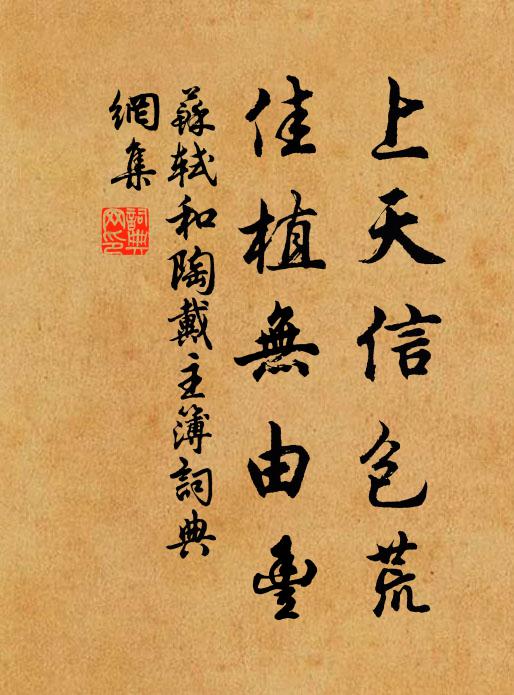 上天信包荒
佳植無由豐
蘇軾和陶戴主簿詞典
網集
詞典
网印